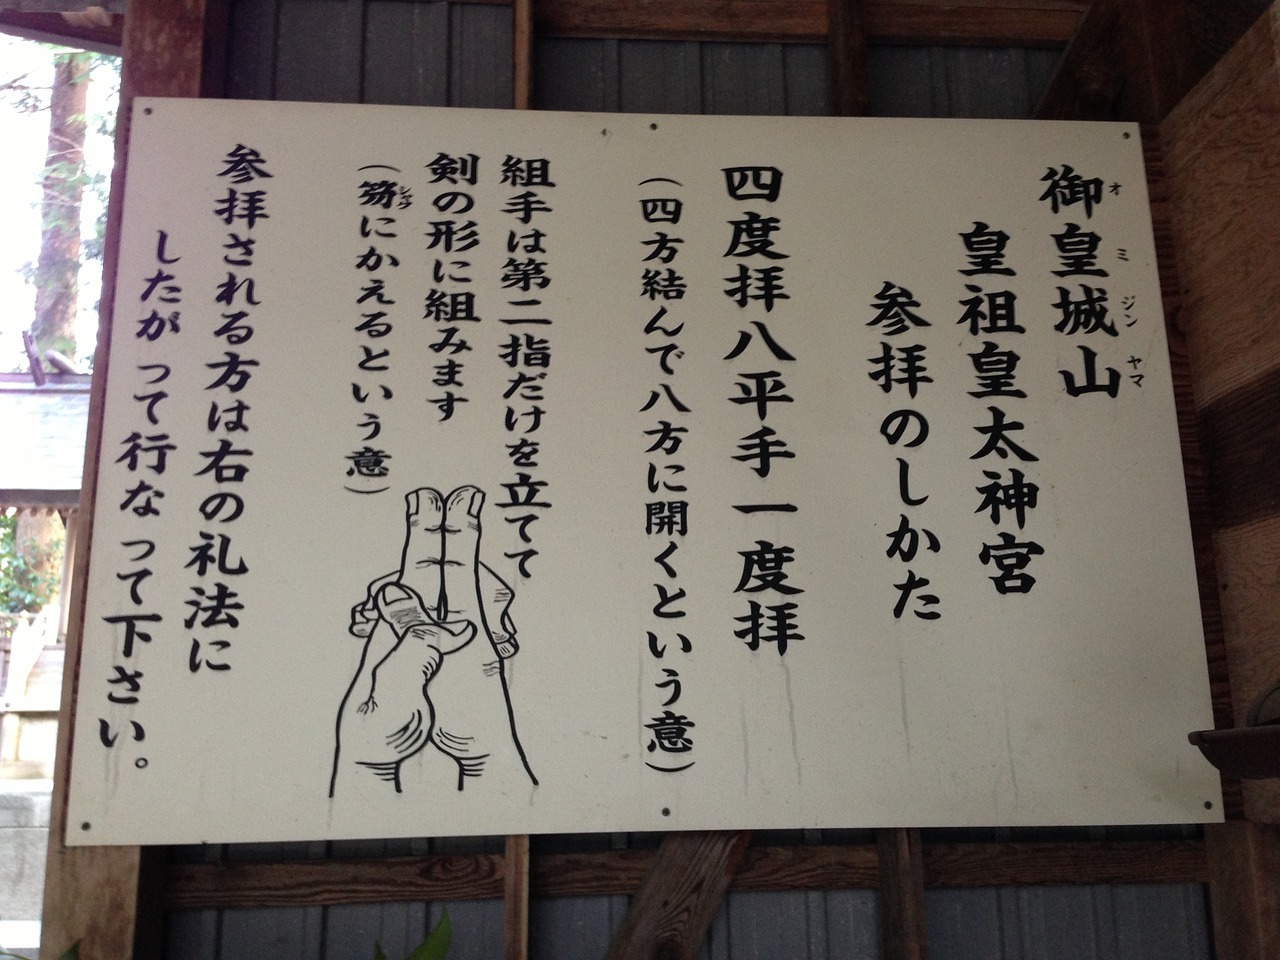 御皇城山
オミジンヤマ
皇祖皇太神宮
参拝のしかた
四度拝八平手一度拝
（四方結んで八方に開くという意）
組手は第二指だけを立てて
剣の形に組みます
（笏にかえるという意）
シャク
参拝される方は右の礼法に
したがって行なって下さい。